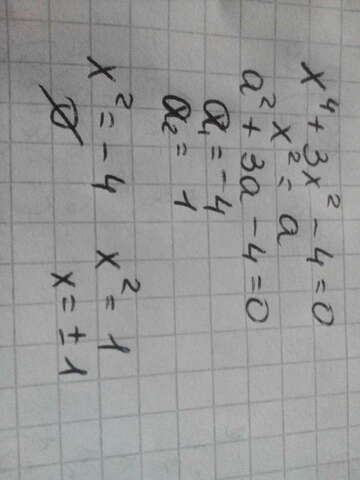 x⁴ + 3x² - 4 = 0
x² = a
a² + 3a - 4 = 0
a₁ = -4
a₂ = 1
x² = -4 x² = 1
∅ x = ± 1